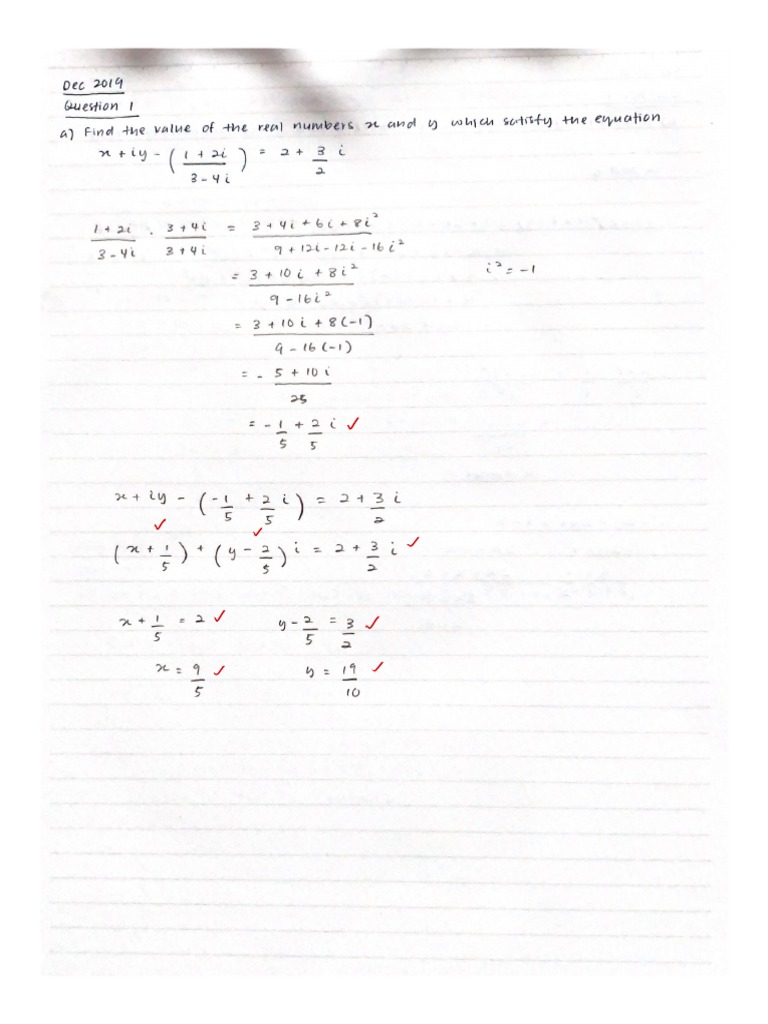 Dec 2019
Question 1
a) Find the value of the real numbers x and y which satisfy the equation
x + iy - ( (1 + 2i)/(3 - 4i) ) = 2 + 3/2 i
(1 + 2i)/(3 - 4i) . (3 + 4i)/(3 + 4i) = (3 + 4i + 6i + 8i²)/(9 + 12i - 12i - 16i²)
= (3 + 10i + 8i²)/(9 - 16i²) i² = -1
= (3 + 10i + 8(-1))/(9 - 16(-1))
= - 5 + 10i/25
= - 1/5 + 2/5 i ✓
x + iy - ( -1/5 + 2/5 i ) = 2 + 3/2 i
✓ ✓
( x + 1/5 ) + ( y - 2/5 ) i = 2 + 3/2 i ✓
x + 1/5 = 2 ✓ y - 2/5 = 3/2 ✓
x = 9/5 ✓ y = 19/10 ✓